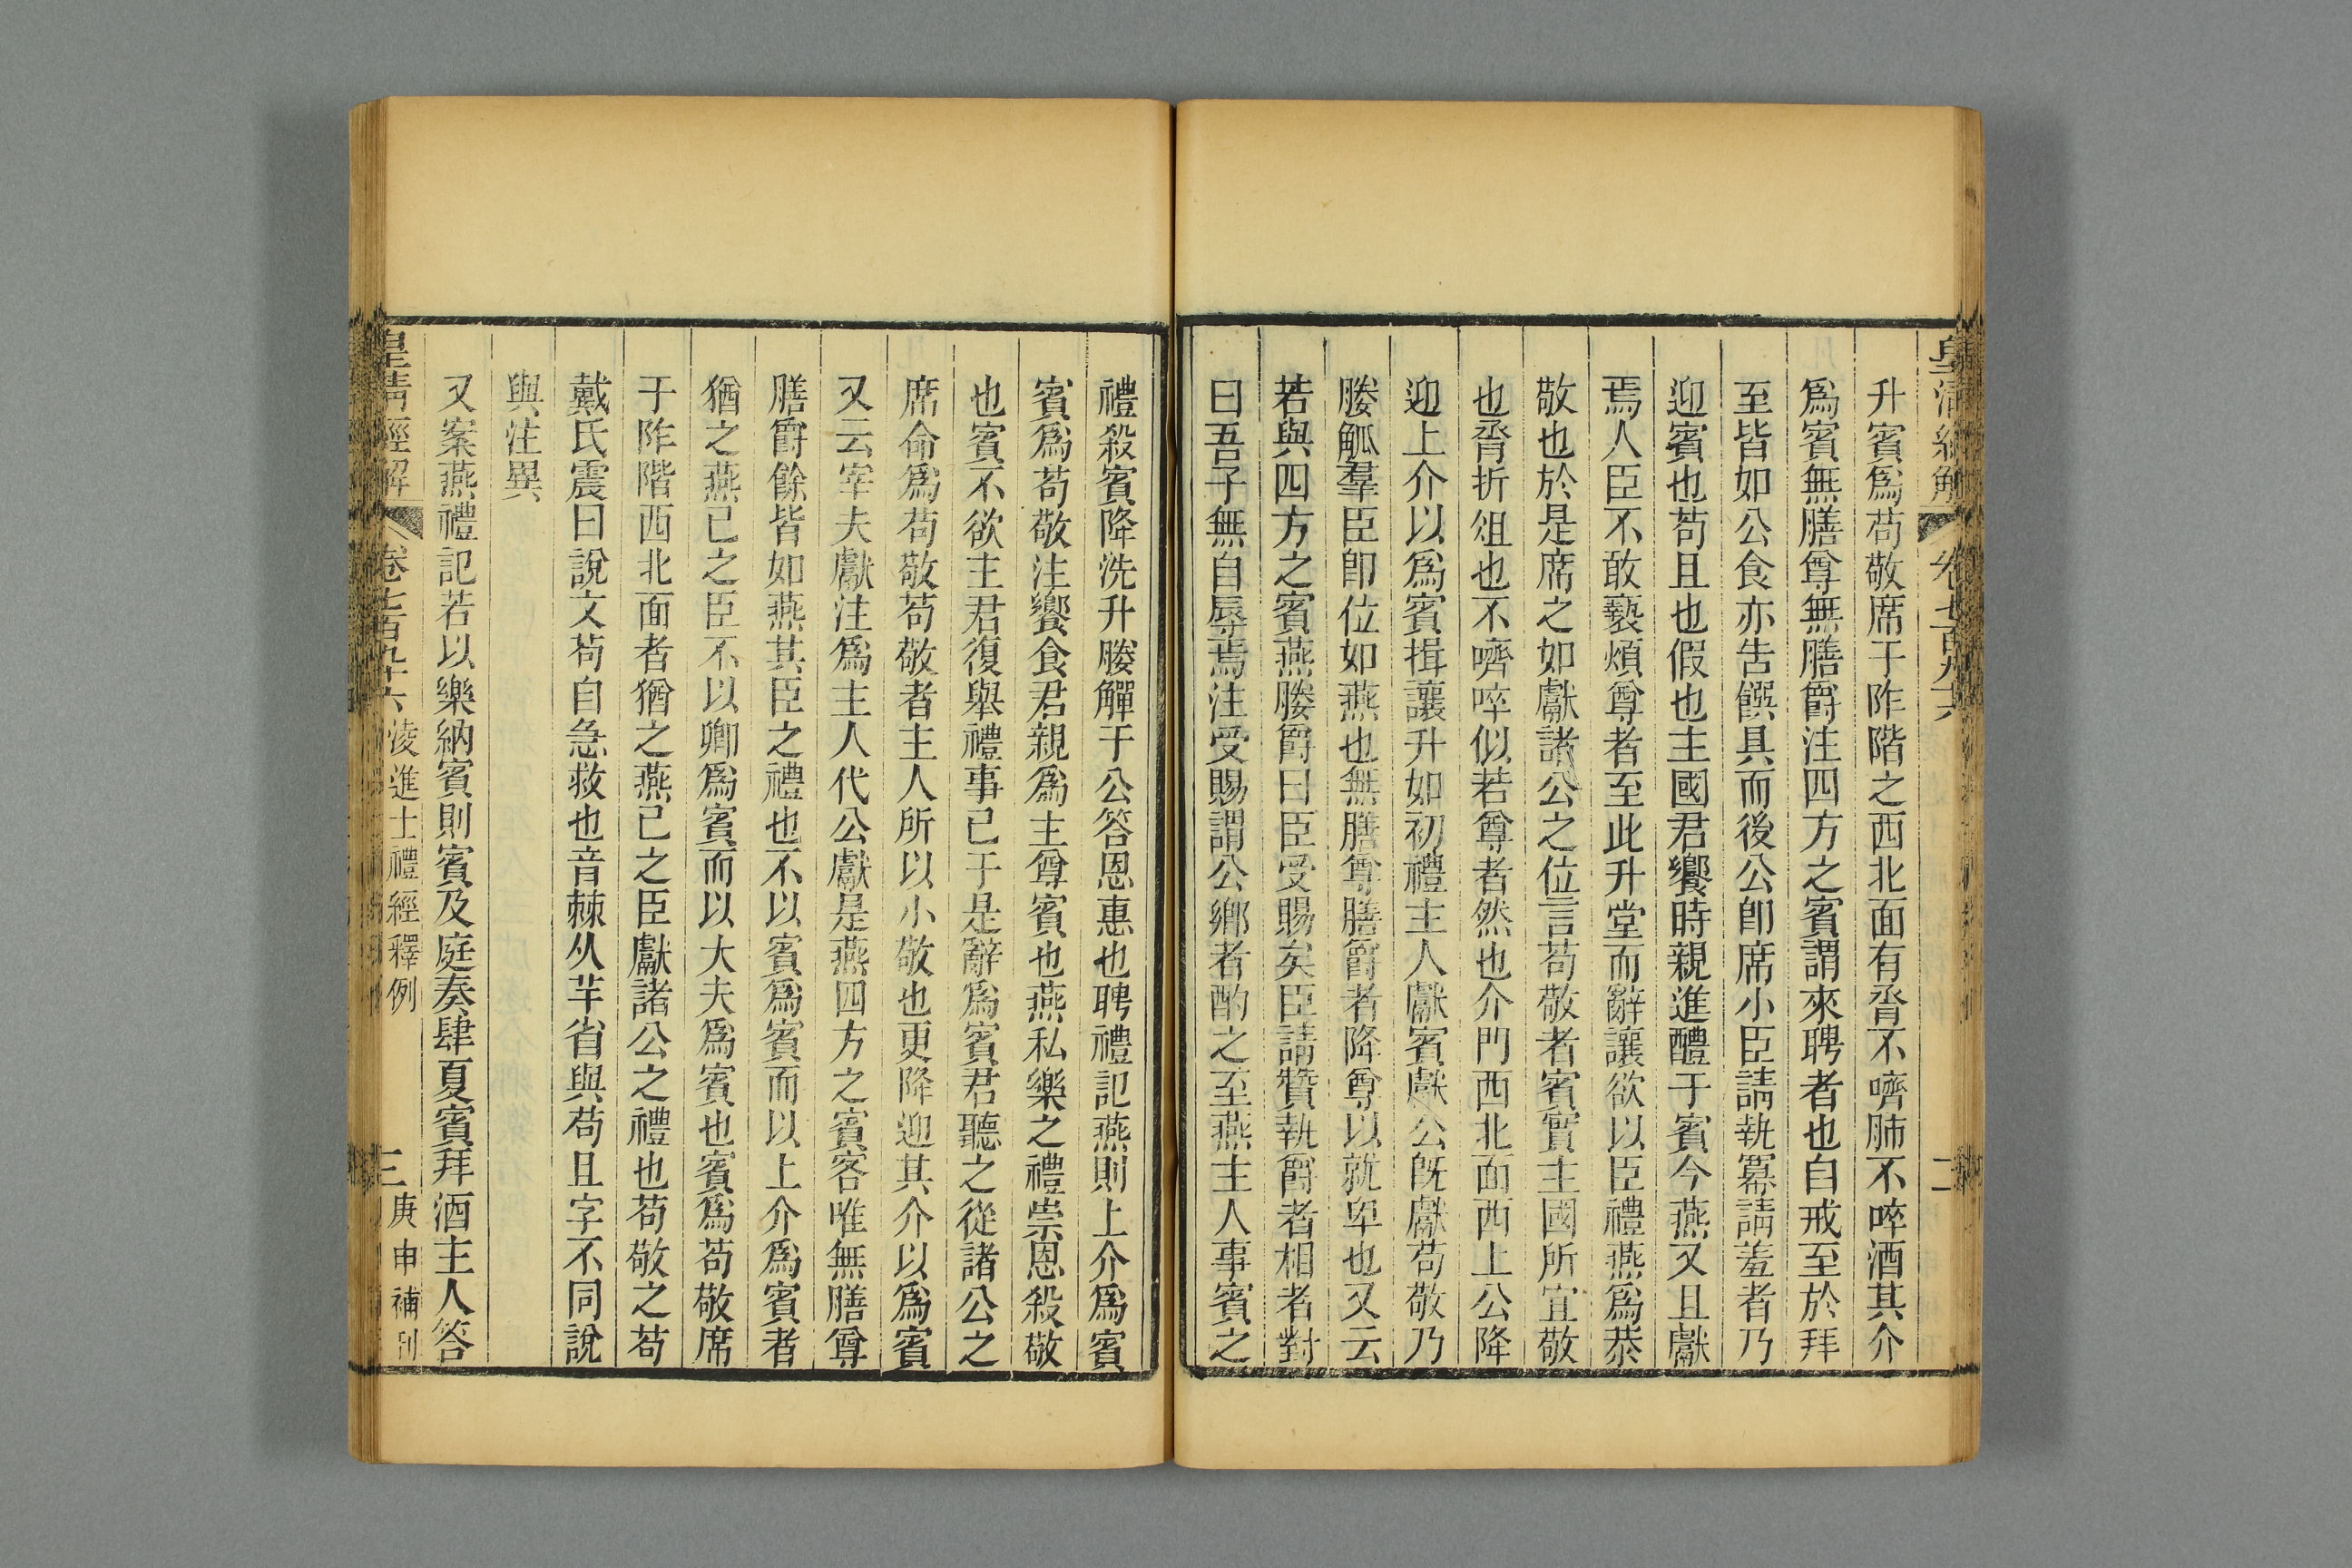 皇清經解 卷七百九十六 二
升賓爲苟敬席于阼階之西北面有脀不嚌肺不啐酒其介
爲賓無膳尊無膳爵注四方之賓謂來聘者也自戒至於拜
至皆如公食亦告饌具而後公卽席小臣請執冪請羞者乃
迎賓也苟且也假也主國君饗時親進醴于賓今燕又且獻
焉人臣不敢褻煩尊者至此升堂而辭讓欲以臣禮燕爲恭
敬也於是席之如獻諸公之位言苟敬者賓實主國所宜敬
也脀折俎也不嚌啐似若尊者然也介門西北面西上公降
迎上介以爲賓揖讓升如初禮主人獻賓獻公旣獻苟敬乃
媵觚羣臣卽位如燕也無膳尊膳爵者降尊以就卑也又云
若與四方之賓燕媵爵曰臣受賜矣臣請贊執爵者相者對
曰吾子無自辱焉注受賜謂公鄕者酌之至燕主人事賓之
禮殺賓降洗升媵觶于公答恩惠也聘禮記燕則上介爲賓
賓爲苟敬注饗食君親爲主尊賓也燕私樂之禮崇恩殺敬
也賓不欲主君復舉禮事已于是辭爲賓君聽之從諸公之
席命爲苟敬苟敬者主人所以小敬也更降迎其介以爲賓
又云宰夫獻注爲主人代公獻是燕四方之賓客唯無膳尊
膳爵餘皆如燕其臣之禮也不以賓爲賓而以上介爲賓者
猶之燕已之臣不以卿爲賓而以大夫爲賓也賓爲苟敬席
于阼階西北面者猶之燕己之臣獻諸公之禮也苟敬之苟
戴氏震曰說文苟自急敕也音棘从芉省與苟且字不同說
與注異
又案燕禮記若以樂納賓則賓及庭奏肆夏賓拜酒主人答
皇清經解 卷七百九十六 淩進士禮經釋例 三 庚申補刊